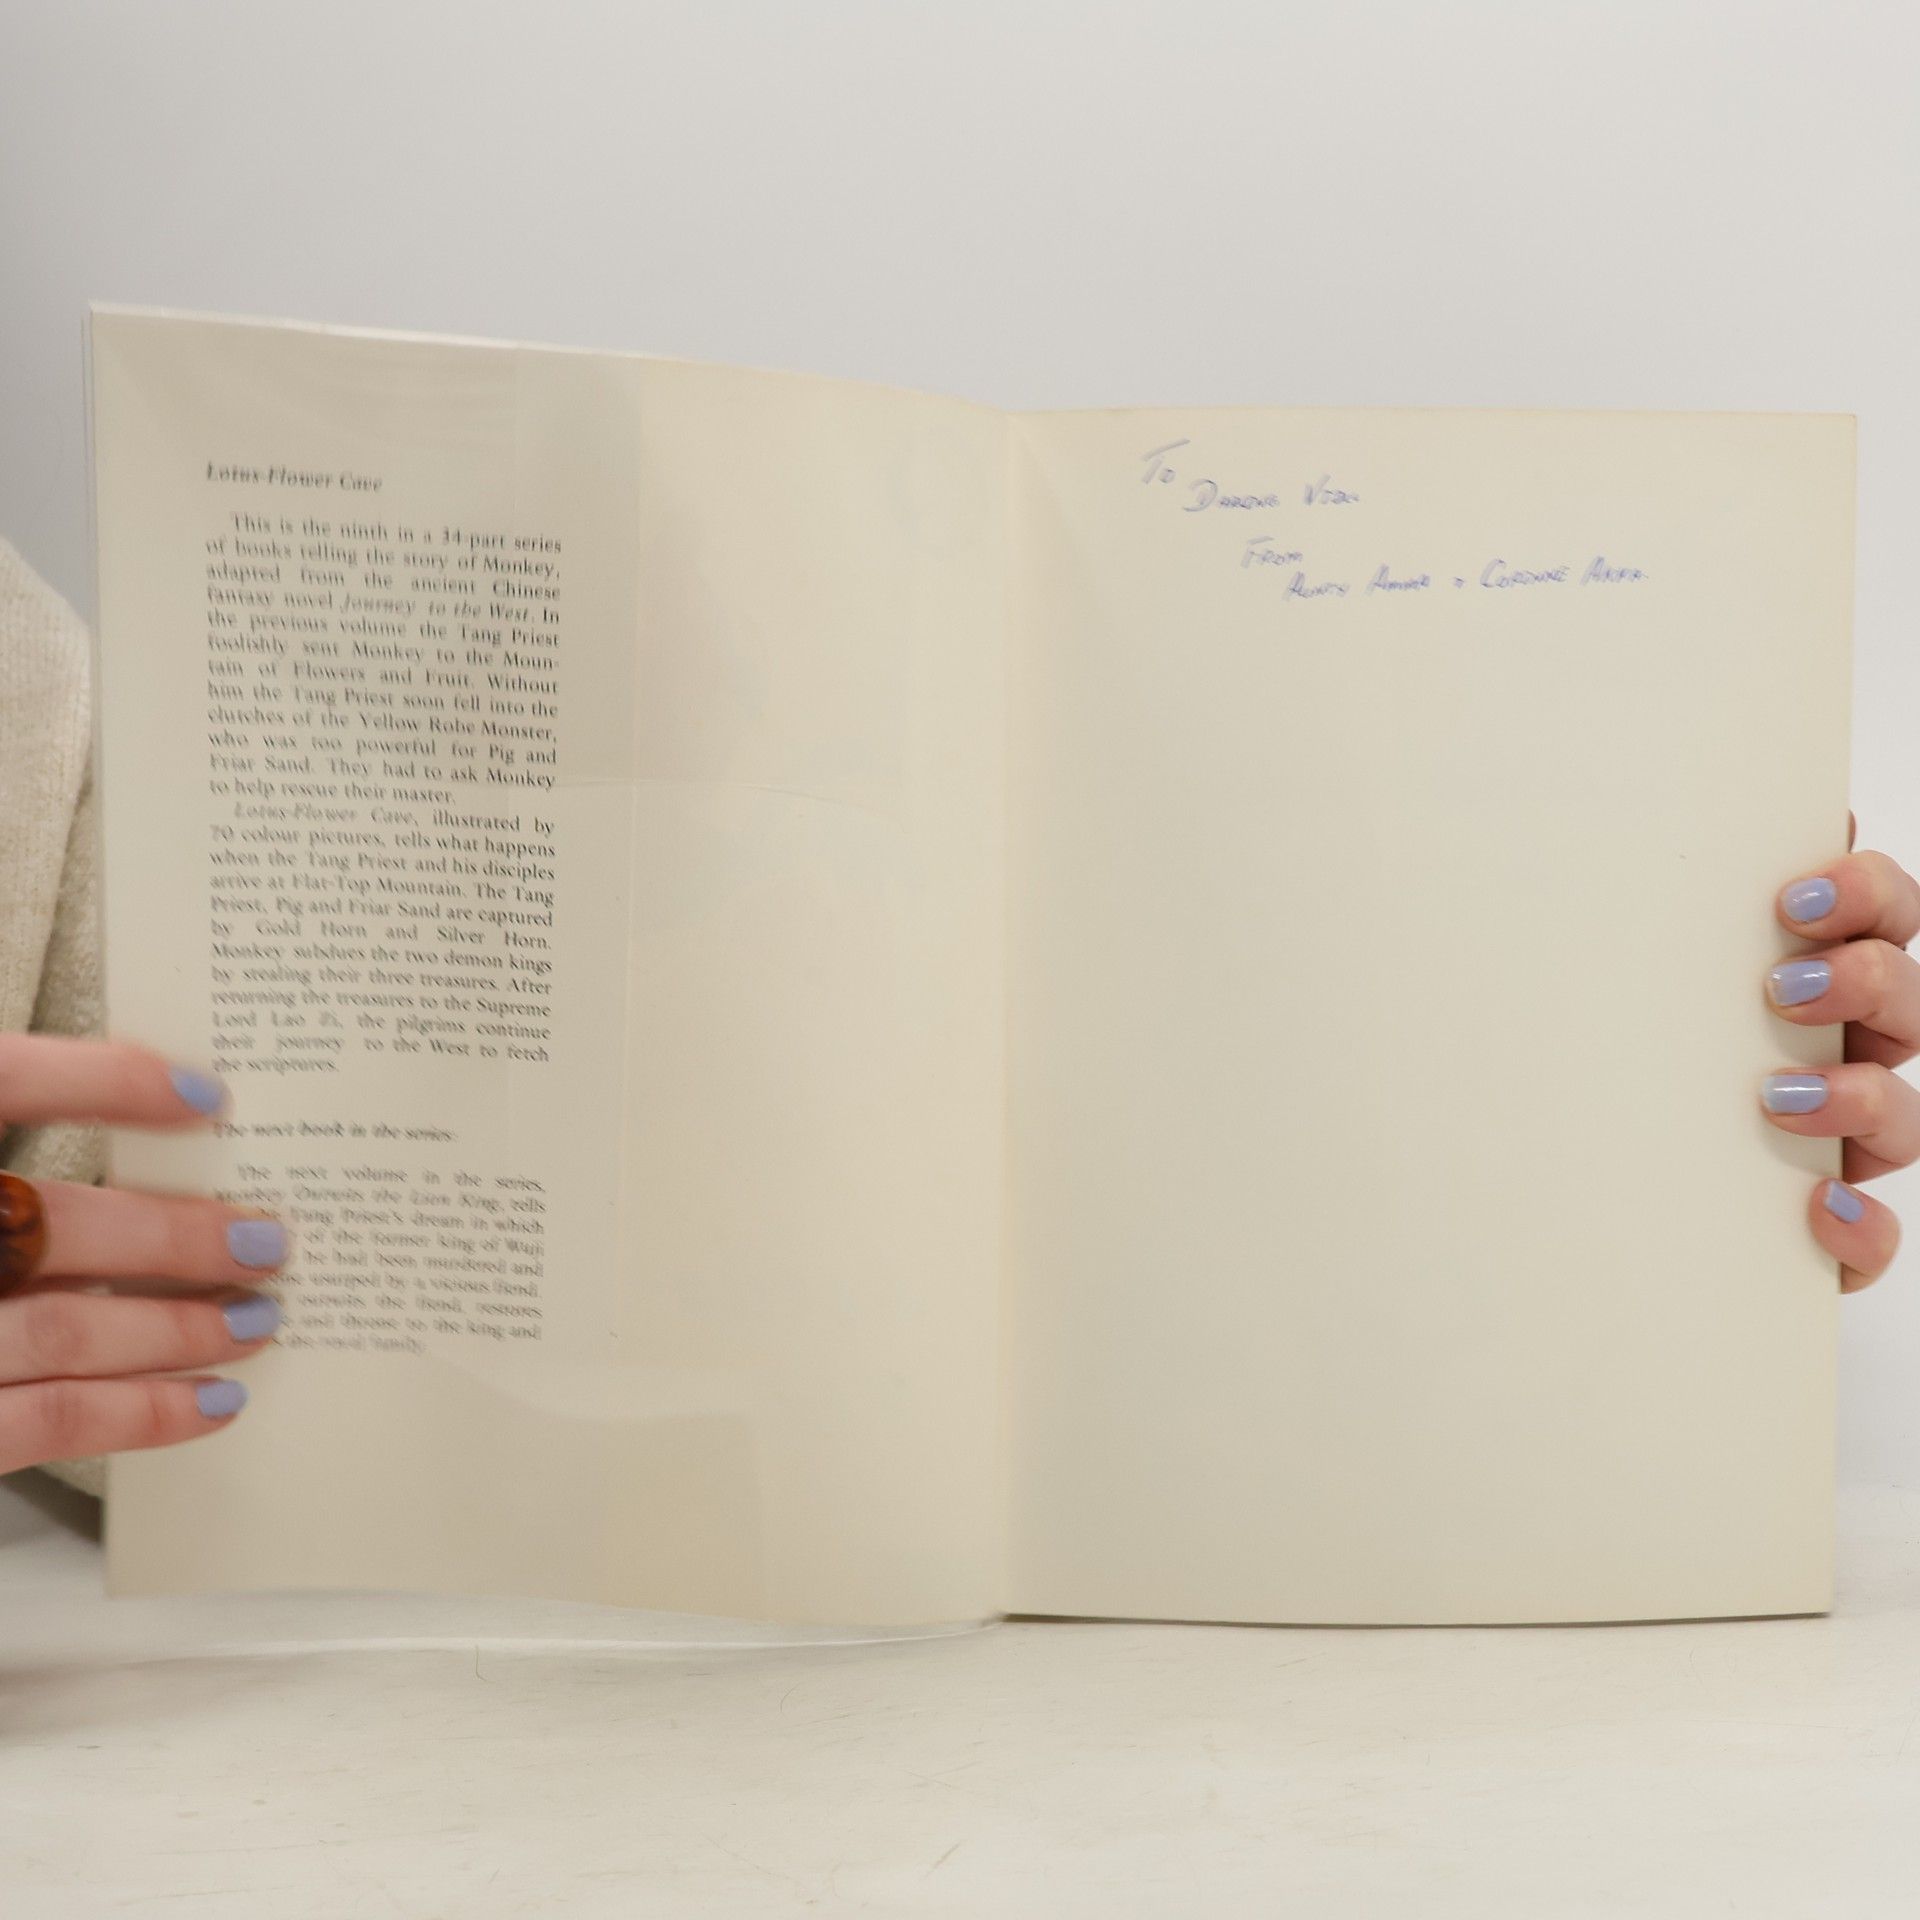 Lotus-Flower Cave
This is the ninth in a 34-part series
of books telling the story of Monkey,
adapted from the ancient Chinese
fantasy novel Journey to the West. In
the previous volume the Tang Priest
foolishly sent Monkey to the Moun-
tain of Flowers and Fruit. Without
him the Tang Priest soon fell into the
clutches of the Yellow Robe Monster,
who was too powerful for Pig and
Friar Sand. They had to ask Monkey
to help rescue their master.
Lotus-Flower Cave, illustrated by
70 colour pictures, tells what happens
when the Tang Priest and his disciples
arrive at Flat-Top Mountain. The Tang
Priest, Pig and Friar Sand are captured
by Gold Horn and Silver Horn.
Monkey subdues the two demon kings
by stealing their three treasures. After
returning the treasures to the Supreme
Lord Lao Zi, the pilgrims continue
their journey to the West to fetch
the scriptures.
The next book in the series:
The next volume in the series,
Monkey Outwits the Lion King, tells
Tang Priest's dream in which
of the former king of Wuji
he had been murdered and
usurped by a vicious fiend.
outwits the fiend, restores
and throne to the king and
the royal family.
To
Darling
From